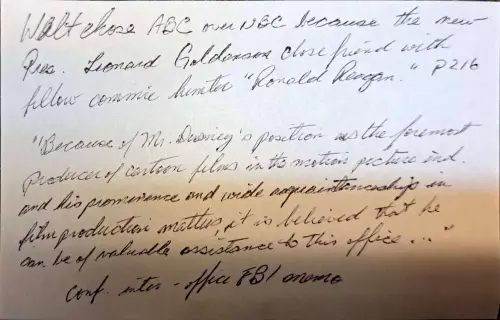 Walt chose ABC over NBC because the new
Pres. Leonard Goldenson close friend with
fellow commie hunter "Ronald Reagan." P216
"Because of Mr. Disney's position as the foremost
producer of cartoon films in the motion picture ind.
and his prominence and wide acquaintanceship in
film production matters, it is believed that he
can be of valuable assistance to this office..."
Conf. inter-office FBI memo